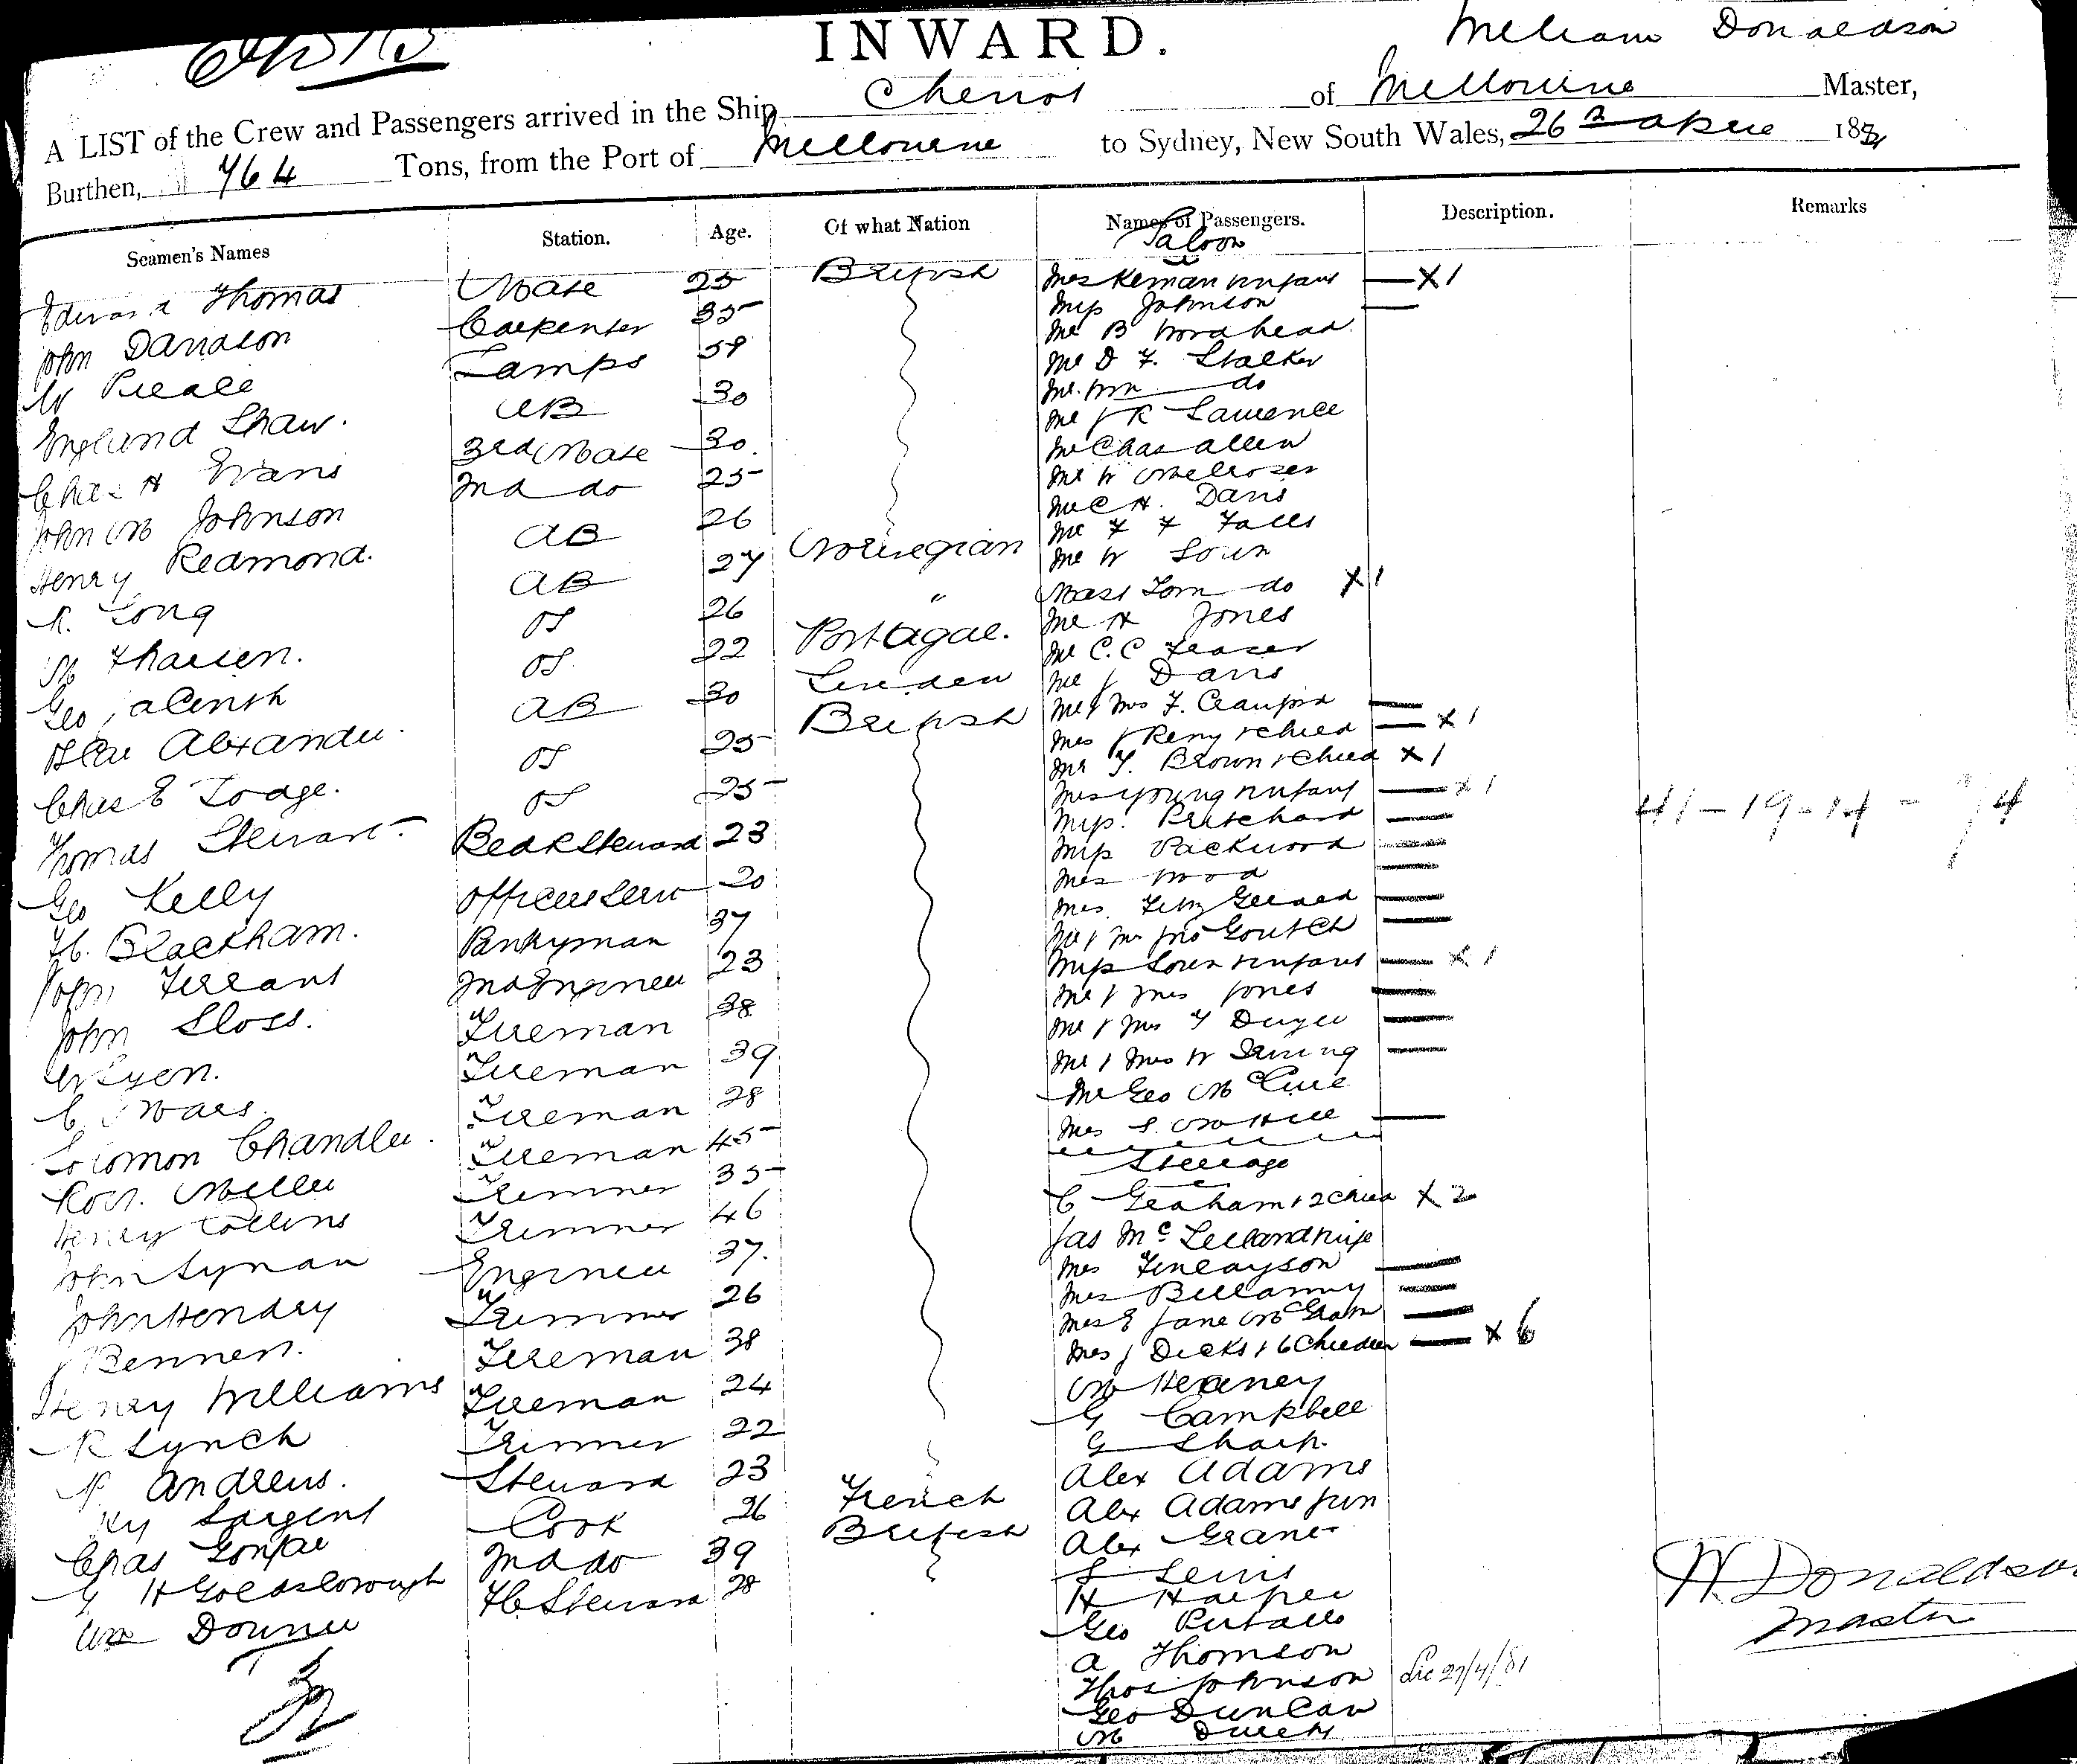 INWARD.
William Donaldson
A LIST of the Crew and Passengers arrived in the Ship Cheviot of Melbourne Master,
Burthen, 764 Tons, from the Port of Melbourne to Sydney, New South Wales, 26th April 1881
Seamen's Names Station. Age. Of what Nation Names of Passengers. Description. Remarks
Saloon
Edward Thomas Mate 25 British
John Davidson Carpenter 35
Lamps 59
England Shaw. AB 30
Chas H Evans 3rd Mate 30.
John M Johnson 2nd do 25
Henry Redmond. AB 26
R. Long AB 27 Norwegian
OS 26 "
Geo OS 22 Portugal.
Alexander. AB 30 Sweden
Chas E Lodge. OS 25 British
Thomas Stewart OS 25
Geo Kelly Bedr Steward 23
H. Blackham. Officers Serv 20
John Ferrant Pantryman 37
John Sloss. 2nd Engineer 23
W Lyon. Fireman 38
C Fireman 39
Solomon Chandler. Fireman 28
Robt. Miller Fireman 45
Henry Collins Trimmer 35
John Lynan Trimmer 46
John Hendry Engineer 37.
J Bennett. Trimmer 26
Henry Williams Fireman 38
R Lynch Fireman 24
P Andrews. Trimmer 22
Hy Sargent Steward 23
Chas Cook 26 French
G H Goldsborough 2nd do 39 British
Wm Downie F.C. Steward 28
Mrs Kernan & Infant — X 1
Miss Johnson —
Mr B Woodhead.
Mr D F. Stalker
Mr. Wm do
Mr J R Lawrence
Mr Chas Allen
Mr W Melrose
Mr C H. Davis
Mr F F Falls
Mr W
Mast Tom do X 1
Mr H Jones
Mr C. C Fraser
Mr J Davis
Mr & Mrs F. Craufurd —
Mrs J Reny & Child — X 1
Mr T. Brown & Child X 1
Mrs Young & Infant — X 1
Miss. Pritchard —
Miss Packwood —
Mrs Wood —
Mrs. Fitzgerald —
Mr & Mrs Jno Goutch —
Miss & Infant — X 1
Mr & Mrs Jones —
Mr & Mrs T Dwyer —
Mr & Mrs W Irving —
Mr Geo McClure
Mrs S. —
Steerage
C Graham & 2 Child X 2
Jas McLelland & Wife
Mrs Finlayson —
Mrs Bellamy —
Mrs E Jane —
Mrs J Dicks & 6 Children — X 6
M Heaney
G Campbell
G Sharp.
Alex Adams
Alex Adams Jun
Alex Grant
S Lewis
H Harper
Geo
A Thomson
Thos Johnson
Geo Duncan
M
41 - 19 - 14 - 74
W. Donaldson
Master
27/4/81